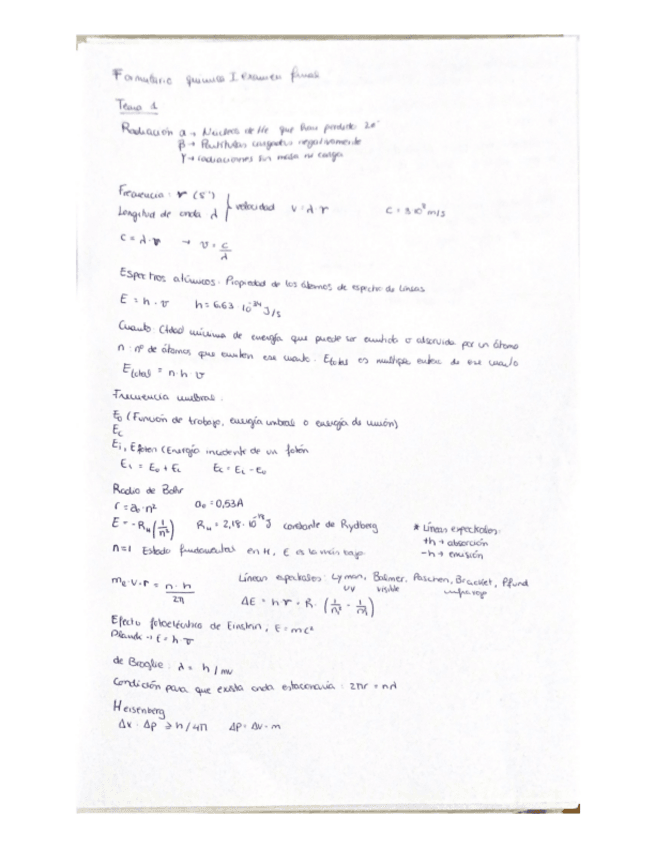 Formulario química I examen final
Tema 1
Radiación α → Núcleos de He que han perdido 2e⁻
β → Partículas cargadas negativamente
γ → radiaciones sin masa ni carga
Frecuencia: ν (s⁻¹)
Longitud de onda λ } velocidad v = λ·ν c = 3·10⁸ m/s
c = λ·ν → ν = c/λ
Espectros atómicos: Propiedad de los átomos de espectro de líneas
E = h·ν h = 6.63 10⁻³⁴ J/s
Cuanto: Ctdad mínima de energía que puede ser emitida o absorvida por un átomo
n: nº de átomos que emiten ese cuanto. Etotal es multiplo entero de ese cuanto
Etotal = n·h·ν
Frecuencia umbral:
E₀ (Función de trabajo, energía umbral o energía de unión)
Ec
Ei, Efoton (Energía incidente de un fotón
Ei = E₀ + Ec Ec = Ei - E₀
Radio de Bohr
r = a₀·n² a₀ = 0,53A
E = -R_H (1/n²) R_H = 2,18·10⁻¹⁸ J constante de Rydberg * Líneas espectrales:
+h → absorción
n=1 Estado fundamental en H, E es la más baja -h → emisión
me·v·r = n·h/2π Líneas espectrales: Lyman, Balmer, Paschen, Bracket, Pfund
UV visible infrarrojo
ΔE = hν = R·(1/n² - 1/n²)
Efecto fotoeléctrico de Einstein, E = mc²
Planck → E = h ν
de Broglie: λ = h/mv
Condición para que exista onda estacionaria: 2πr = nλ
Heisenberg
Δx · Δp ≥ h/4π Δp = Δv·m